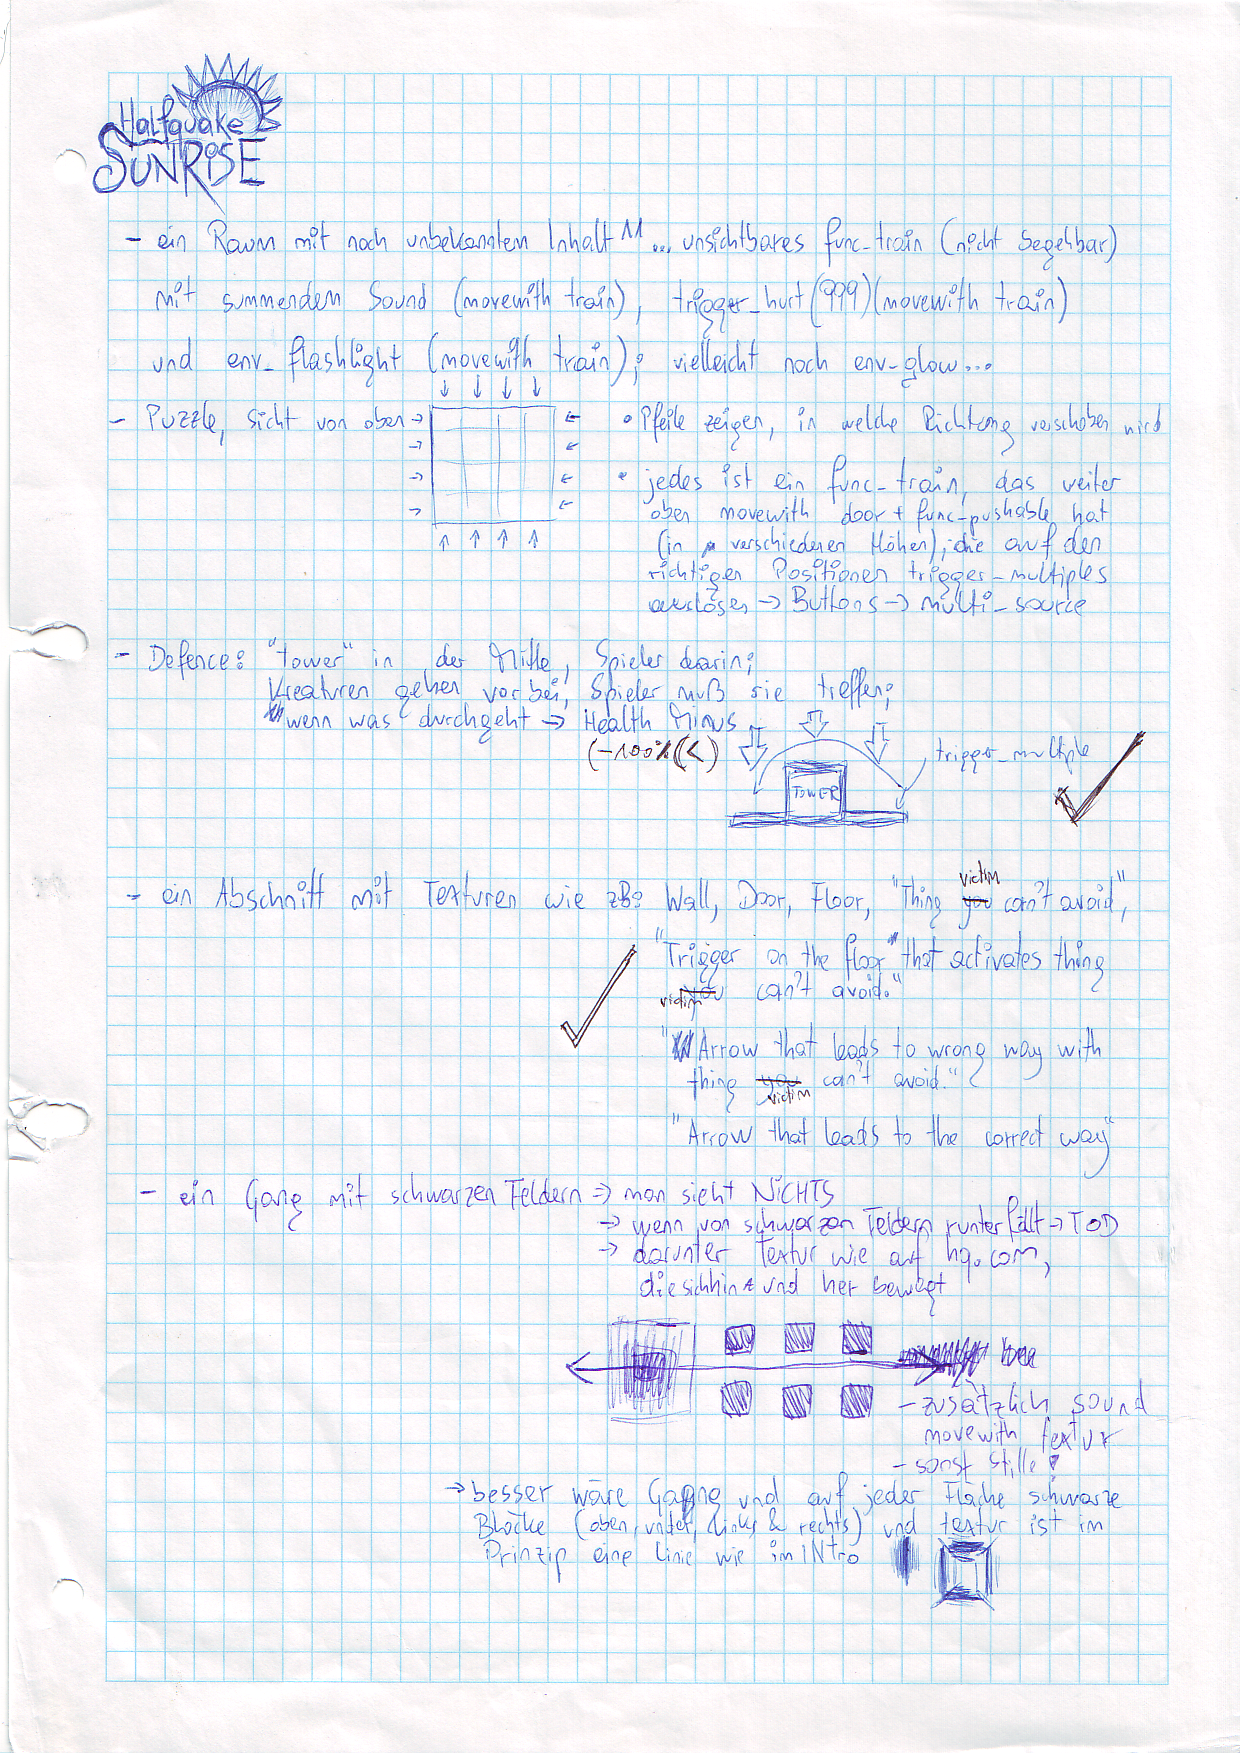 Halfquake
SUNRiSE
- ein Raum mit noch unbekanntem Inhalt ... unsichtbares func_train (nicht begehbar)
mit summendem Sound (movewith train), trigger_hurt (999) (movewith train)
und env_flashlight (movewith train); vielleicht noch env_glow...
- Puzzle, sicht von oben
• Pfeile zeigen, in welche Richtung verschoben wird
• jedes ist ein func_train, das weiter
oben movewith door + func_pushable hat
(in verschiedenen Höhen), die auf den
richtigen Positionen trigger_multiples
auslösen → Buttons → multi_source
- Defence: "tower" in der Mitte, Spieler darin;
Kreaturen gehen vorbei, Spieler muß sie treffen;
wenn was durchgeht → Health Minus
(-100% (<)
trigger_multiple
TOWER
- ein Abschnitt mit Texturen wie zB: Wall, Door, Floor, "Thing you victim can't avoid",
"Trigger on the floor that activates thing
you victim can't avoid."
"Arrow that leads to wrong way with
thing you victim can't avoid."
"Arrow that leads to the correct way"
- ein Gang mit schwarzen Feldern → man sieht NiCHTS
→ wenn von schwarzen Feldern runterfällt → TOD
→ darunter Textur wie auf hq.com,
die sich hin & und her bewegt
- zusätzlich sound
movewith textur
- sonst stille!
→ besser wäre Gang und auf jeder Fläche schwarze
Blöcke (oben, unten, links & rechts) und textur ist im
Prinzip eine Linie wie im INtro